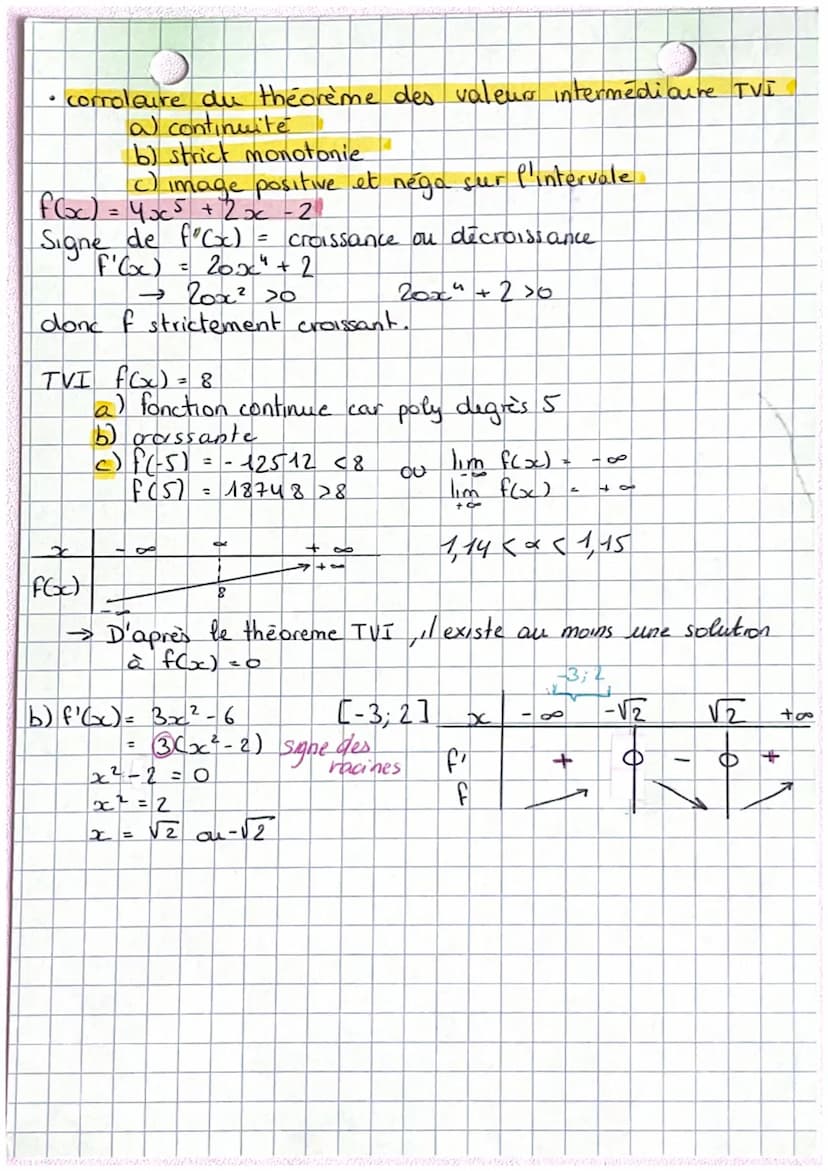 · corrolaire du théorème des valeurs intermédiaire TVI
a) continuité
b) strict monotonie
c) image positive et néga sur l'intervale
f(x) = 4x⁵ + 2x - 2
Signe de f'(x) = croissance ou décroissance
f'(x) = 20x⁴ + 2
→ 20x² >0 20x⁴ + 2 >0
donc f strictement croissant.
TVI f(x) = 8
a) fonction continue car poly degrès 5
b) croissante
c) f(-5) = - 12512 <8 ou lim f(x) = -∞
-∞
f(5) = 18748 >8 lim f(x) = +∞
+∞
x -∞ α +∞ 1,14 < α < 1,15
f(x) -∞ 8 +∞
→ D'après le théoreme TVI, il existe au moins une solution
à f(x) = 0
-3; 2
b) f'(x) = 3x² - 6 [-3; 2] x -∞ -√2 √2 +∞
= 3(x² - 2) signe des
racines
f' + 0 - 0 +
x² - 2 = 0
f
x² = 2
x = √2 ou -√2